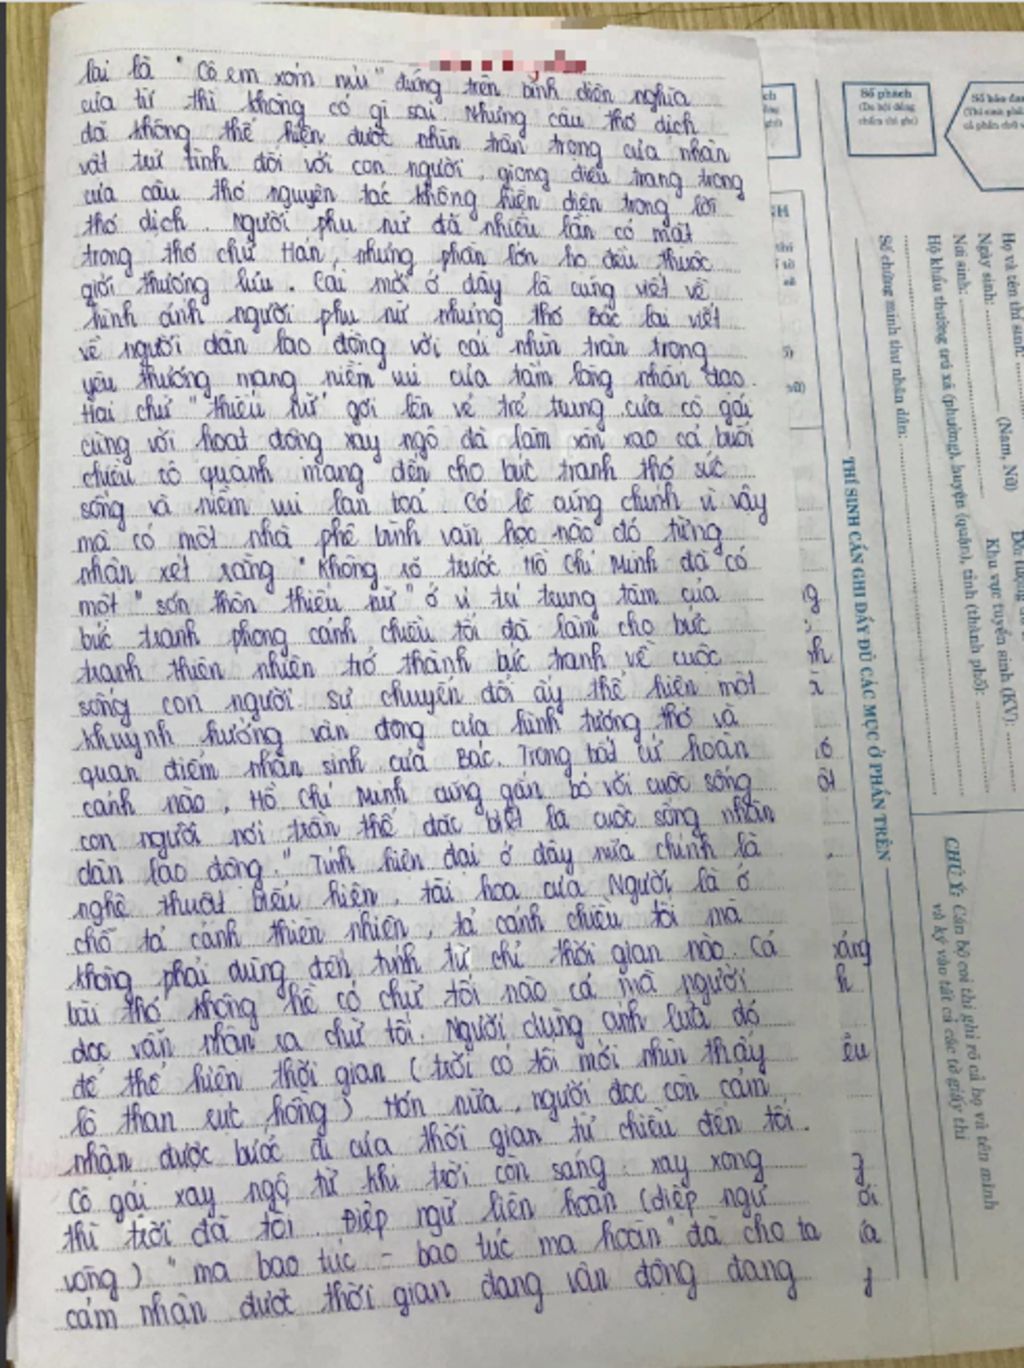 lại là "Cô em xóm núi" đứng trên bình diện nghĩa
của từ thì không có gì sai. Nhưng câu thơ dịch
đã không thể hiện được nhìn trân trọng của nhân
vật trữ tình đối với con người, giọng điệu trang trọng
của câu thơ nguyên tác không hiện diện trong lời
thơ dịch. Người phụ nữ đã nhiều lần có mặt
trong thơ chữ Hán, nhưng phần lớn họ đều thuộc
giới thượng lưu. Cái mới ở đây là cũng viết về
hình ảnh người phụ nữ nhưng thơ Bác lại viết
về người dân lao động với cái nhìn trân trọng
yêu thương mang niềm vui của tấm lòng nhân đạo.
Hai chữ "thiếu nữ" gợi lên vẻ trẻ trung của cô gái
cùng với hoạt động xay ngô đã làm xôn xao cả buổi
chiều cô quạnh mang đến cho bức tranh thơ sức
sống và niềm vui lan toả. Có lẽ cũng chính vì vậy
mà có một nhà phê bình văn học nào đó từng
nhận xét rằng "Không rõ trước Hồ Chí Minh đã có
một "sơn thôn thiếu nữ" ở vị trí trung tâm của
bức tranh phong cảnh chiều tối đã làm cho bức
tranh thiên nhiên trở thành bức tranh về cuộc
sống con người. Sự chuyển đổi ấy thể hiện một
khuynh hướng vận động của hình tượng thơ và
quan điểm nhân sinh của Bác. Trong bất cứ hoàn
cảnh nào, Hồ Chí Minh cũng gắn bó với cuộc sống
con người nơi trần thế đặc biệt là cuộc sống nhân
dân lao động." Tính hiện đại ở đây nữa chính là
nghệ thuật biểu hiện, tài hoa của Người là ở
chỗ tả cảnh thiên nhiên, tả cảnh chiều tối mà
không phải dùng đến tính từ chỉ thời gian nào. Cả
bài thơ không hề có chữ tối nào cả mà người
đọc vẫn nhận ra chữ tối. Người dụng ánh lửa đỏ
để thể hiện thời gian (trời có tối mới nhìn thấy
lò than rực hồng) Hơn nữa, người đọc còn cảm
nhận được bước đi của thời gian từ chiều đến tối.
Cô gái xay ngô từ khi trời còn sáng. xay xong
thì trời đã tối. Điệp ngữ liên hoàn (điệp ngữ
vòng) "ma bao túc - bao túc ma hoàn" đã cho ta
cảm nhận được thời gian đang vận động đang
Số phách
(Do hội đồng
chấm thi ghi)
Họ và tên thí sinh:
Ngày sinh: (Nam, Nữ)
Nơi sinh: Khu vực tuyển sinh (KV):
Hộ khẩu thường trú xã (phường), huyện (quận), tỉnh (thành phố):
Số chứng minh thư nhân dân:
THÍ SINH CẦN GHI ĐẦY ĐỦ CÁC MỤC Ở PHẦN TRÊN
CHÚ Ý: Cán bộ coi thi ghi rõ cả họ và tên mình
và ký vào tất cả các tờ giấy thi